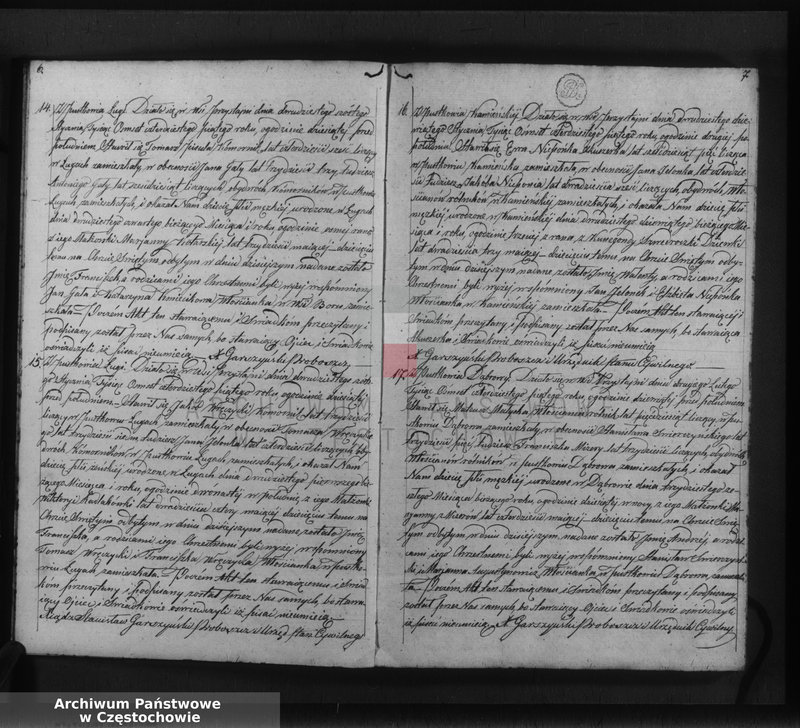 6.
14. Z Pustkowia Ługi Działo się w wsi Przystajni dnia dwudziestego szóstego
Stycznia Tysiąc Ośmset czterdziestego piątego roku, o godzinie dziesiątej przed
południem Stawił się Tomasz komornik lat czterdzieści sześć liczący
w Ługach zamieszkały w obecności Jana Gały lat trzydzieści trzy tudzież
Gały lat sześćdziesiąt liczących, obydwóch komorników w Pustkowiu
Ługach zamieszkałych, i okazał Nam dziecię płci męzkiej urodzone w Ługach
dnia dwudziestego czwartego bieżącego Miesiąca i roku o godzinie rano
z jego Małżonki Maryanny lat trzydzieści mającej dziecięciu
temu na Chrzcie Świętym odbytym w dniu dzisiejszym nadane zostało
Imię Franciszek a rodzicami jego Chrzestnemi byli wyżej wspomniony
Jan Gała i Katarzyna Włościanka w wsi Boru zamie-
szkała Poczem Akt ten stawiającemu i Świadkom przeczytany i
podpisany został przez Nas samych, bo stawiający Ojciec i Świadkowie
oświadczyli iż pisać nieumieją. X Garszyński Proboszcz
15. Z Pustkowia Ługi. Działo się w wsi Przystajni dnia dwudziestego szós-
tego Stycznia Tysiąc Ośmset czterdziestego piątego roku o godzinie dziesiątej
przed południem Stawił się Jakób Wrczycki komornik lat trzydzieści
liczący w Pustkowiu Ługach zamieszkały w obecności Tomasza
lat trzydzieści tudzież Jana Jelonka lat czterdzieści liczących oby-
dwóch komorników w Pustkowiu Ługach zamieszkałych, i okazał Nam
dziecię płci żeńskiej urodzone w Ługach dnia dwudziestego pierwszego bie-
żącego Miesiąca i roku o godzinie dwunastej w południe z jego Małżonki
Wiktoryi lat dwadzieścia cztery mającej dziecięciu temu na
Chrzcie Świętym odbytym w dniu dzisiejszym nadane zostało Imię
Franciszka, a rodzicami jego Chrzestnemi byli wyżej wspomniony
Tomasz i Franciszka Włościanka w Pustko-
wiu Ługach zamieszkała Poczem Akt ten stawiającemu i Świad-
kom przeczytany i podpisany został przez Nas samych, bo stawia-
jący Ojciec i Świadkowie oświadczyli iż pisać nieumieją
Xiądz Stanisław Garszyński Proboszcz i Urzęd Stanu Cywilnego
7.
16. Z Pustkowia Kamińskiej Działo się w wsi Przystajni dnia dwudziestego dzie-
wiątego Stycznia Tysiąc Ośmset czterdziestego piątego roku, o godzinie drugiej po
południu. Stawiła się Ewa Akuszerka lat sześćdziesiąt pięć licząca
w Pustkowiu Kamińska zamieszkała w obecności Jana Jelonka lat czterdzie-
ści tudzież Jakóba lat dwadzieścia sześć liczących, obydwóch Wło-
ścianów rolników w Kamińskiej zamieszkałych, i okazała Nam dziecię płci
męzkiej urodzone w Kamińskiej dnia dwudziestego dziewiątego bieżącego Mie-
siąca i roku o godzinie trzeciej z rana, z Kunegundy Dziewki
lat dwadzieścia trzy mającej dziecięciu temu na Chrzcie Świętym odby-
tym w dniu dzisiejszym nadane zostało Imię Walenty a rodzicami jego
Chrzestnemi byli wyżej wspomniony Jan Jelonek i Elżbieta
Włościanka w Kamińskiej zamieszkała Poczem Akt ten stawiającej i
Świadkom przeczytany i podpisany został przez Nas samych, bo stawiająca
Akuszerka i Świadkowie oświadczyli iż pisać nieumieją
X Garszyński Proboszcz i Urzędnik Stanu Cywilnego
17. Z Pustkowia Dąbrowy. Działo się w wsi Przystajni dnia drugiego Lutego
Tysiąc Ośmset czterdziestego piątego roku o godzinie dziesiątej przed południem
Stawił się Mateusz Włościanin rolnik lat pięćdziesiąt liczący w Pust-
kowiu Dąbrowa zamieszkały w obecności Stanisława lat
trzydzieści pięć tudzież Franciszka lat trzydzieści liczących obydwóch
Włościanów rolników w Pustkowiu Dąbrowa zamieszkałych i okazał
Nam dziecię płci męzkiej urodzone w Dąbrowie dnia trzydziestego ze-
szłego Miesiąca bieżącego roku, o godzinie dziesiątej w nocy z jego Małżonki Ma-
ryanny z lat czterdzieści mającej dziecięciu temu na Chrzcie Świę-
tym odbytym w dniu dzisiejszym nadane zostało Imię Andrzej a rodzi-
cami jego Chrzestnemi byli wyżej wspomniony Stanisław
i Maryanna Włościanka w Pustkowiu Dąbrowa zamieszka-
ła Poczem Akt ten stawiającemu i Świadkom przeczytany i podpisany
został przez Nas samych bo stawiający Ojciec i Świadkowie oświadczyli
iż pisać nieumieją X Garszyński Proboszcz i Urzędnik Cywilny
Archiwum Państwowe
w Częstochowie